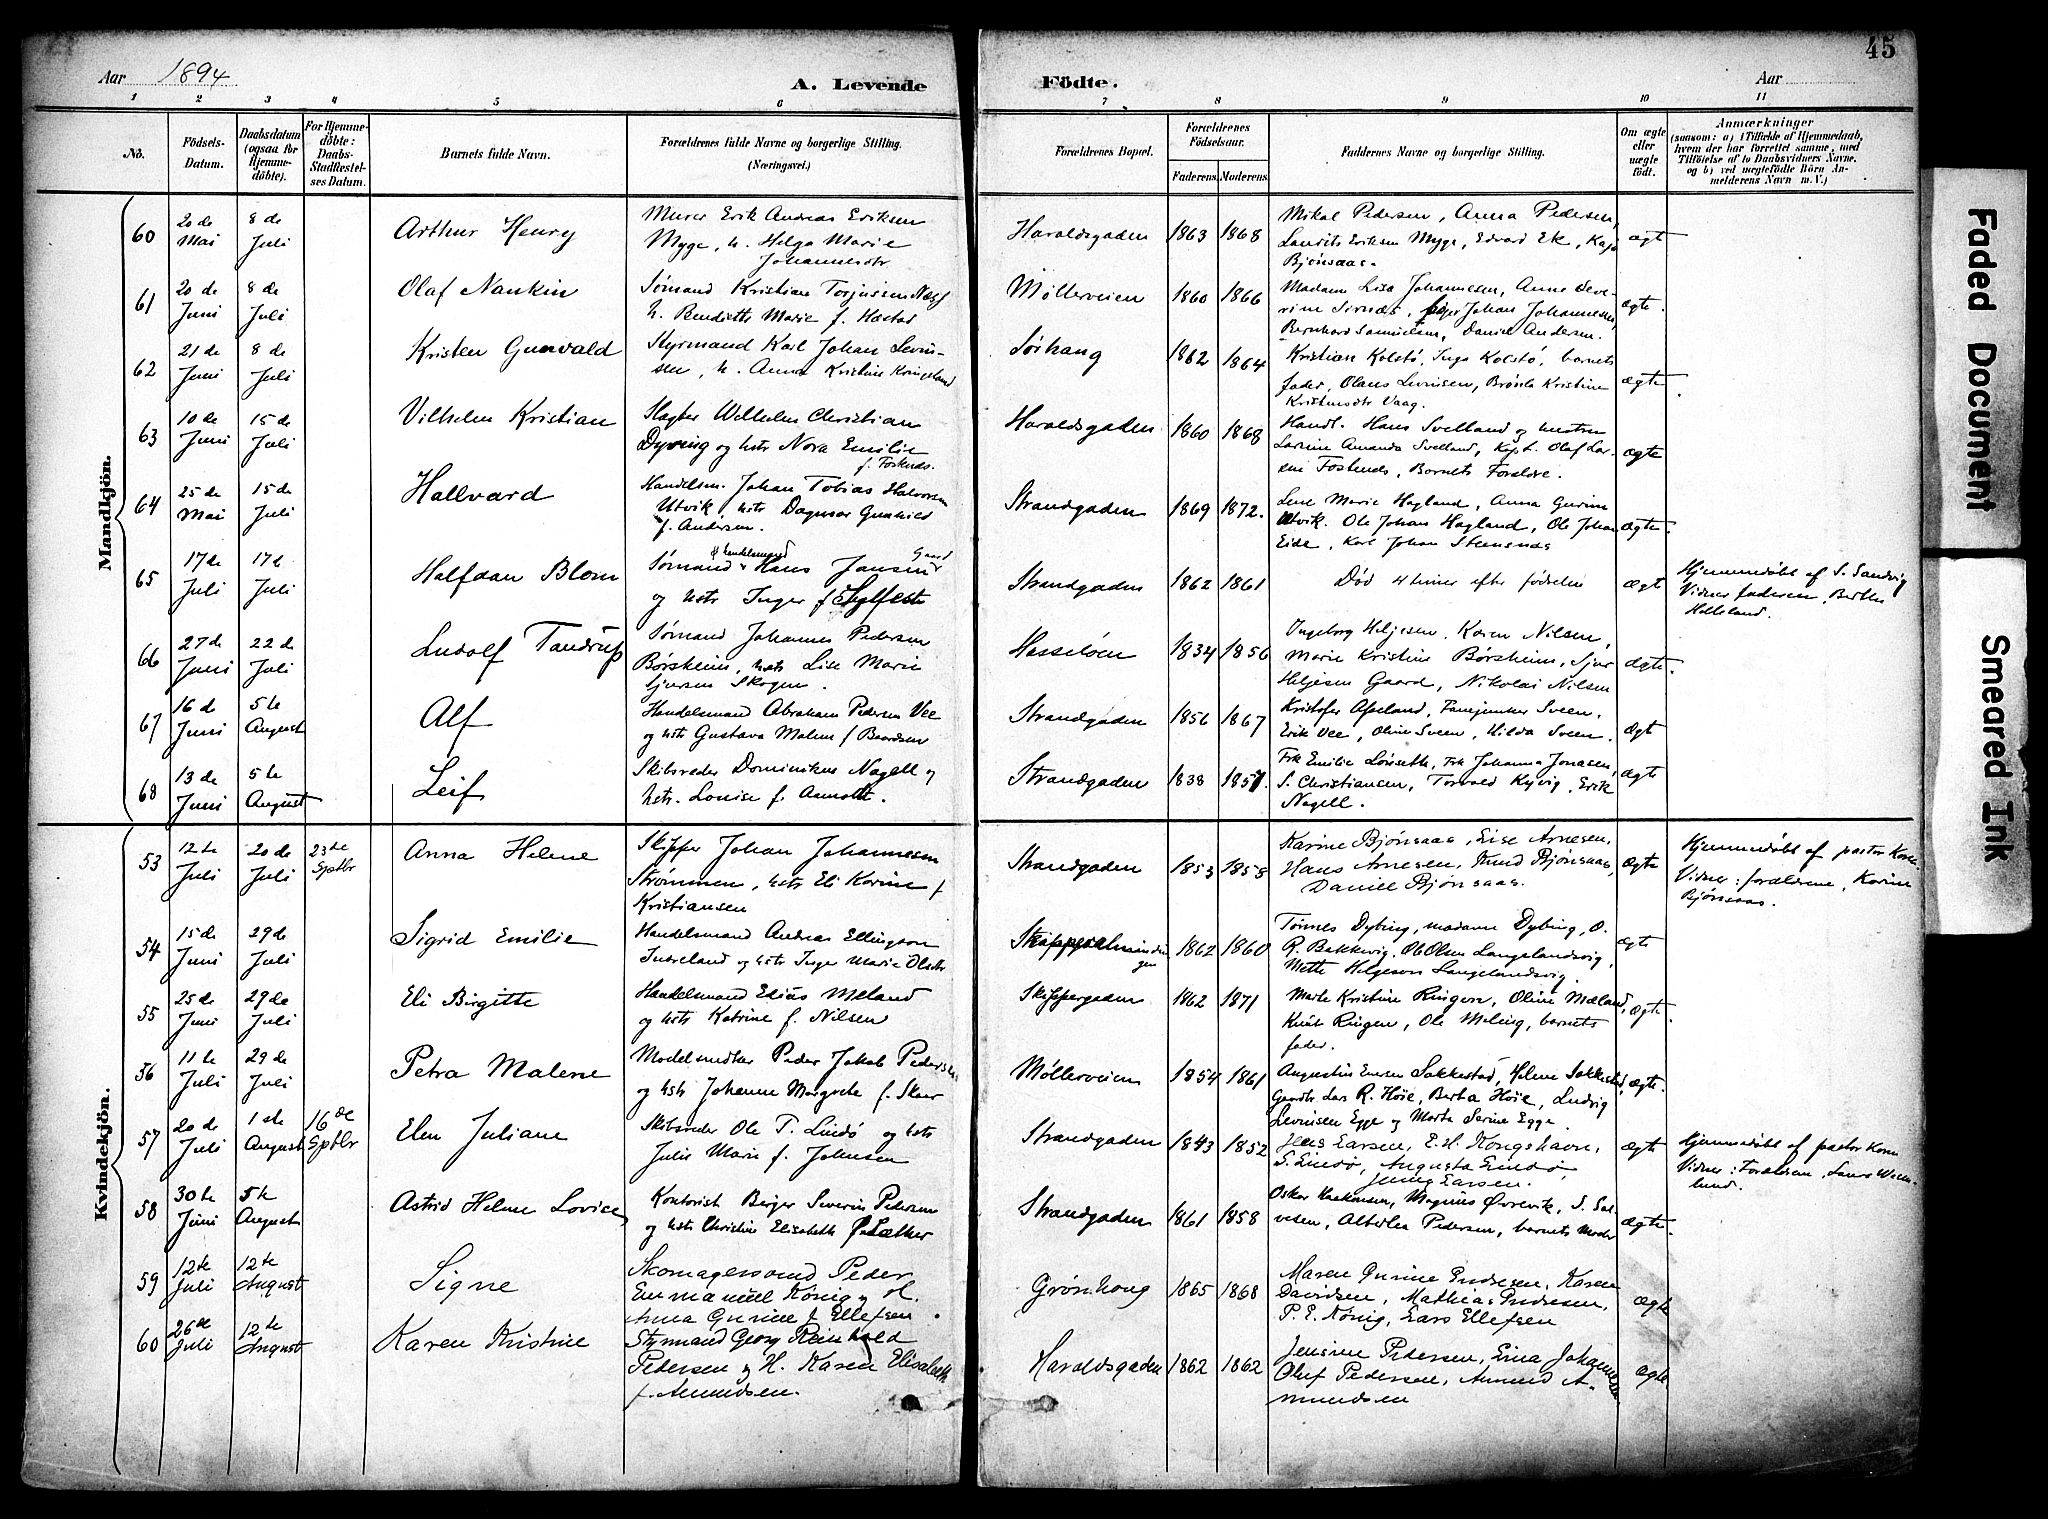 45
Aar 1894
A. Levende
Födte.
Aar
1 2 3 4 5 6 7 8 9 10 11
No.
Födsels-Datum.
Daabsdatum (ogsaa for Hjemme-döbte).
For Hjemme-döbte: Daabs-Stadfæstel-ses Datum.
Barnets fulde Navn.
Forældrenes fulde Navne og borgerlige Stilling.
(Næringsvei.)
Forældrenes Bopæl.
Forældrenes Födselsaar.
Faderens. Moderens.
Faddernes Navne og borgerlige Stilling.
Om ægte eller uægte födt.
Anmærkninger
(saasom: a) i Tilfælde af Hjemmedaab, hvem der har forrettet samme, med Tilföielse af to Daabsvidners Navne, og b) ved uægtefödte Börn An-melderens Navn m. V.)
Mandkjön.
60 20de Mai 8de Juli Arthur Henry Murer Erik Andreas Eriksen
Myge, h. Helga Marie
Johannesdtr Haraldsgaden 1863 1868 Mikal Pedersen, Anna Pedersen,
Laurits Eriksen Mygge, Edvard Ek, Kaja
Bjönsaas. ægt
61 20de Juni 8de Juli Olaf Nankin Sømand Kristian Torjussen
h. Bendikte Marie f. Hastad Møllerveien 1860 1866 Madam Lisa Johannesen, Anne Seve-
rine, Johan Johannesen,
Bernhard Samuelsen, Daniel Andersen. ægte.
62 21de Juni 8de Juli Kristen Gunvald Styrmand Karl Johan Levin-
sen, h. Anna Kristine Kringeland Sørhaug 1862 1864 Kristian Kolstø, Inga Kolstø, barnets
fader, Olaus Levinsen, Brønla Kristine
Kristensdtr Vaag. ægte.
63 10de Juni 15de Juli Vilhelm Kristian Slagter Wilhelm Christian
Dyring og hstr Nora Emilie
f. Fosknæs. Haraldsgaden 1860 1868 Handl. Hans Svelland og hustru
Lavine Amanda Svelland, Kapt. Olaf Lar-
sen, Barnets Forældre. ægte
64 25de Mai 15de Juli Hallvard Handelsm. Johan Tobias Halvorsen
Utvik, hstr Dagmar Gunhild
f. Andersen. Strandgaden 1869 1872. Lene Marie Hagland, Anna Gurine
Utvik. Ole Johan Hagland, Ole Johan
Eide, Karl Johan Steensnæs ægte.
65 17de Juli 17de Juli Halfdan Blom Sømand Handelsmand Hans Jansen Gaard
og hstr Inger f Sylfest Strandgaden 1862 1861 Død 4 timer efter fødselen ægt Hjemmedøbt af S. Sandvig
Vidner faderen, Berthe
Helleland.
66 27de Juni 22de Juli Ludolf Tandrup Sømand Johannes Pedersen
Børsheim, hstr Lise Marie
Sjursen Skogen. Hasseløen 1834 1856 Ingeborg Heljesen, Karen Nilsen,
Marie Kristine Børsheim, Sjur
Heljesen Gaard, Nikolai Nilsen ægte.
67 16de Juni 5te August Alf Handelsmand Abraham Pedersen Vee
og hstr Gustava Malene f Baardsen Strandgaden 1856 1867 Kristofer Apeland, Fanejunker Sveen,
Erik Vee, Oline Sveen, Hilda Sveen. ægt
68 13de Juni 5te August Leif Skibsreder Dominikus Nagell og
hstr. Louise f. Strandgaden 1838 1851. Frk Emilie Lønseth, Frk Johanna Jonasen,
S. Christiansen, Torvald Kyvig, Erik
Nagell. ægt
Kvindekjön.
53 12te Juli 20de Juli 23de Sptbr Anna Helene Skipper Johan Johannesen
Strømmen, hstr Eli Karine f
Kristiansen Strandgaden 1853 1858 Karine Bjönsaas, Lise Arnesen,
Hans Arnesen, Bjönsaas,
Daniel Bjönsaas. ægte Hjemmedøbt af pastor
Vidner: forældrene, Karine
Bjönsaas.
54 15de Juni 29de Juli Sigrid Emilie Handelsmand Andreas Ellingsen
og hstr Inger Marie Olsdtr Skippersalmindin
gen 1862 1860 Tønnes Dybing, madame Dybing, O.
R. Bakkevig, Ole Olsen Langelandsvig,
Mette Helgesen Langelandsvig, ægt
55 25de Juni 29de Juli Eli Birgitte Handelsmand Elias Meland
og hstr Katrine f. Nilsen Skippergaden 1862 1871 Marte Kristine Ringen, Oline Mæland,
Knut Ringen, Ole Meling, barnets
fader. ægte.
56 11te Juli 29de Juli Petra Malene Modelsnedker Peder Jakob Pedersen
og hstr Johanne Margrete f. Skaar Møllerveien 1854 1861 Augustin Enersen Sakkestad, Helene Sakkestad,
Gaardbr Lars R. Höie, Berta Höie, Ludvig
Levinsen Egge og Marta Serine Egge. ægte.
57 20de Juli 1ste August 16de Sptbr Elen Juliane Skibsreder Ole T. Lindø og hstr
Julie Marie f. Johnsen Strandgaden 1843 1852 Jens Larsen, E. H. Kongshavn,
S. Lindø, Augusta Lindø,
Jenny Larsen. ægt Hjemmedøbt af pastor
Vidner: Forældrene,
58 30te Juni 5te August Astrid Helene Lovice Kontorist Berger Severin Pedersen
og hstr Christine Elisabeth f. Sæther Strandgaden 1861 1858 Oskar Haakonsen, Magnus Øvrevik, S. Sal-
vesen, Pedersen, barnets Moder ægte.
59 12te Juli 12te August Signe Skomagersvend Peder
Emmanuel König og H.
Anna Gurine f. Ellefsen. Grønhoug 1865 1868 Maren Gurine Endresen, Karen
Davidsen, Mathias Endresen,
P. E. König, Lars Ellefsen ægte
60 26de Juli 12te August Karen Kristine Styrmand Georg Reinhold
Pedersen og H. Karen Elisabeth
f. Amundsen. Haraldsgaden 1862 1862 Jensine Pedersen, Lina Johannesen
Oluf Pedersen, Amund A-
mundsen ægte
Faded Document
Smeared Ink